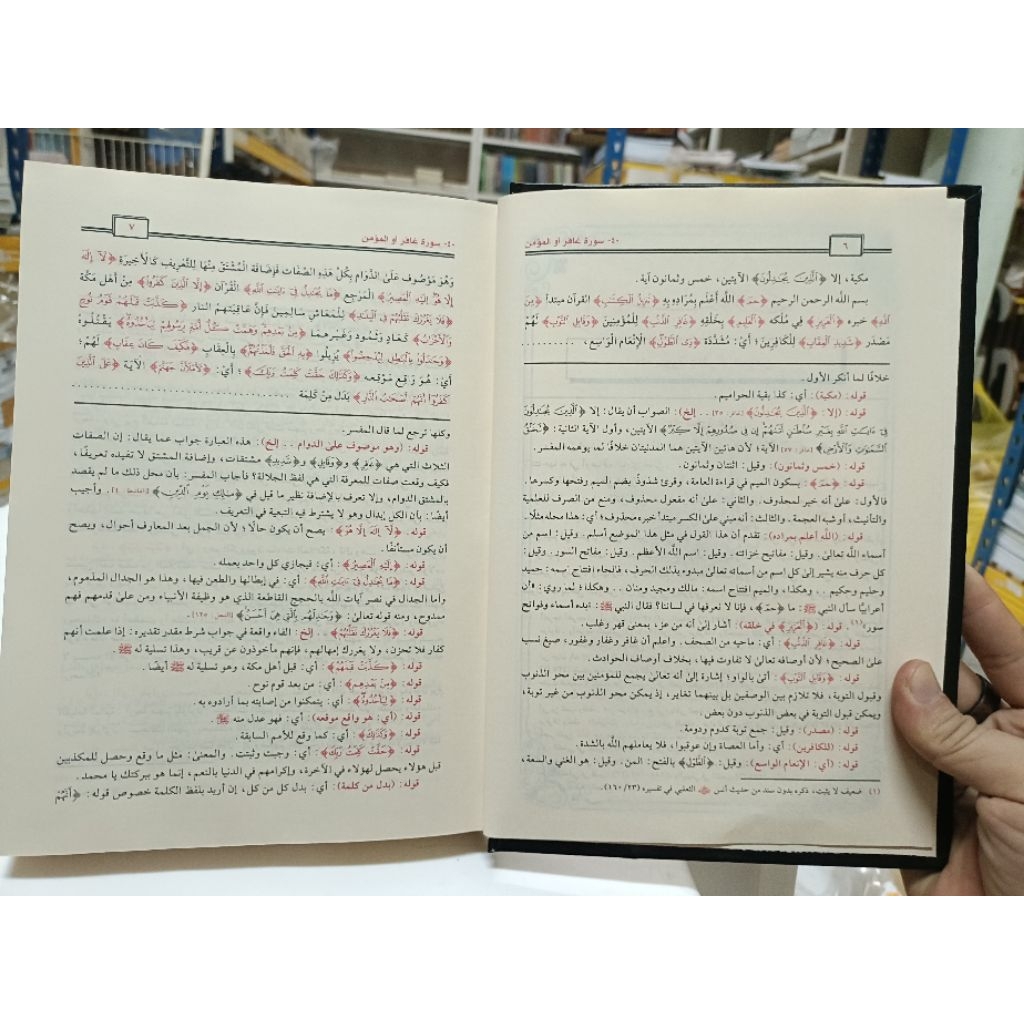 ٦
٤٠- سورة غافر أو المؤمن
مكية، إلا ﴿الَّذِينَ يُجَادِلُونَ﴾ الآيتين، خمس وثمانون آية.
بسم اللَّه الرحمن الرحيم ﴿حمٓ﴾ اللَّه أعلم بمراده به ﴿تَنزِيلُ الْكِتَابِ﴾ القرآن مبتدأ ﴿مِنَ
اللَّهِ﴾ خبره ﴿الْعَزِيزِ﴾ في ملكه ﴿الْعَلِيمِ﴾ بخلقه ﴿غَافِرِ الذَّنبِ﴾ للمؤمنين ﴿وَقَابِلِ التَّوْبِ﴾ لهم
مصدر ﴿شَدِيدِ الْعِقَابِ﴾ للكافرين؛ أي: مشدده ﴿ذِي الطَّوْلِ﴾ الإنعام الواسع،
خلافًا لما أنكر الأول.
قوله: (مكية): أي: كذا بقية الحواميم.
قوله: (إلا: ﴿الَّذِينَ يُجَادِلُونَ﴾ [غافر: ٣٥] .. إلخ): الصواب أن يقال: إلا ﴿الَّذِينَ يُجَادِلُونَ
فِي آيَاتِ اللَّهِ بِغَيْرِ سُلْطَانٍ أَتَاهُمْ إِن فِي صُدُورِهِمْ إِلَّا كِبْرٌ﴾ الآيتين، وأول الآية الثانية: ﴿لَخَلْقُ
السَّمَاوَاتِ وَالْأَرْضِ﴾ [غافر: ٥٧] الآية؛ لأن هاتين الآيتين هما المدنيتان خلافًا لما يوهمه المفسر.
قوله: (خمس وثمانون): وقيل: اثنتان وثمانون.
قوله: ﴿حمٓ﴾: بسكون الميم في قراءة العامة، وقرئ شذوذًا بضم الميم وفتحها وكسرها.
فالأول: على أنه خبر لمحذوف. والثاني: على أنه مفعول محذوف، ومنع من الصرف للعلمية
والتأنيث، أو شبه العجمة. والثالث: أنه مبني على الكسر مبتدأ خبره محذوف؛ أي: هذا محله مثلًا.
قوله: (اللَّه أعلم بمراده): تقدم أن هذا القول في مثل هذا الموضع أسلم. وقيل: اسم من
أسماء اللَّه تعالى. وقيل: مفاتيح خزائنه. وقيل: اسم اللَّه الأعظم. وقيل: مفاتح السور. وقيل:
كل حرف منه يشير إلى كل اسم من أسمائه تعالى مبدوء بذلك الحرف، فالحاء افتتاح اسمه: حميد
وحليم وحكيم .. وهكذا، والميم افتتاح اسمه: مالك ومجيد ومنان .. وهكذا؛ لما روي: «أن
أعرابيًّا سأل النبي ﷺ: ما ﴿حمٓ﴾، فإنا لا نعرفها في لساننا؟ فقال النبي ﷺ: بدء أسماء وفواتح
سور»(١). قوله: (﴿الْعَزِيزِ﴾ في خلقه): أشار إلى أنه من عز، بمعنى قهر وغلب.
قوله: ﴿غَافِرِ الذَّنبِ﴾: أي: ماحيه من الصحف. واعلم أن غافر وغفار وغفور، صيغ نسب
على الصحيح؛ لأن أوصافه تعالى لا تفاوت فيها، بخلاف أوصاف الحوادث.
قوله: ﴿وَقَابِلِ التَّوْبِ﴾: أتى بالواو؛ إشارة إلى أنه تعالى يجمع للمؤمنين بين محو الذنوب
وقبول التوبة، فلا تلازم بين الوصفين بل بينهما تغاير، إذ يمكن محو الذنوب من غير توبة،
ويمكن قبول التوبة في بعض الذنوب دون بعض.
قوله: (مصدر): وقيل: جمع توبة كدوم ودومة.
قوله: (للكافرين): أي: وأما العصاة وإن عوقبوا، فلا يعاملهم اللَّه بالشدة.
قوله: (أي: الإنعام الواسع): وقيل: ﴿الطَّوْلِ﴾ بالفتح: المن. وقيل: هو الغنى والسعة،
(١) ضعيف لا يثبت، ذكره بدون سند من حديث أنس ﵁ الثعلبي في تفسيره (١٦٠/٢٣).
٤٠- سورة غافر أو المؤمن
٧
وهو موصوف على الدوام بكل هذه الصفات فإضافة المشتق منها للتعريف كالأخيرة ﴿لَا إِلَٰهَ
إِلَّا هُوَ إِلَيْهِ الْمَصِيرُ﴾ المرجع ﴿مَا يُجَادِلُ فِي آيَاتِ اللَّهِ﴾ القرآن ﴿إِلَّا الَّذِينَ كَفَرُوا﴾ من أهل مكة
﴿فَلَا يَغْرُرْكَ تَقَلُّبُهُمْ فِي الْبِلَادِ﴾ للمعاش سالمين فإن عاقبتهم النار ﴿كَذَّبَتْ قَبْلَهُمْ قَوْمُ نُوحٍ
وَالْأَحْزَابُ﴾ كعاد وثمود وغيرهما ﴿مِن بَعْدِهِمْ وَهَمَّتْ كُلُّ أُمَّةٍ بِرَسُولِهِمْ لِيَأْخُذُوهُ﴾ يقتلوه
﴿وَجَادَلُوا بِالْبَاطِلِ لِيُدْحِضُوا﴾ يزيلوا ﴿بِهِ الْحَقَّ فَأَخَذْتُهُمْ﴾ بالعقاب ﴿فَكَيْفَ كَانَ عِقَابِ﴾ لهم؛
أي: هو واقع موقعه ﴿وَكَذَٰلِكَ حَقَّتْ كَلِمَتُ رَبِّكَ﴾؛ أي: ﴿لَأَمْلَأَنَّ جَهَنَّمَ﴾ الآية ﴿عَلَى الَّذِينَ
كَفَرُوا أَنَّهُمْ أَصْحَابُ النَّارِ﴾ بدل من كلمة
وكلها ترجع لما قال المفسر.
قوله: (وهو موصوف على الدوام .. إلخ): هذه العبارة جواب عما يقال: إن الصفات
الثلاث التي هي ﴿غَافِرِ﴾ و﴿وَقَابِلِ﴾ و﴿شَدِيدِ﴾ مشتقات، وإضافة المشتق لا تفيده تعريفًا،
فكيف وقعت صفات للمعرفة التي هي لفظ الجلالة؟ فأجاب المفسر: بأن محل ذلك ما لم يقصد
بالمشتق الدوام، وإلا تعرف بالإضافة نظير ما قيل في ﴿مَالِكِ يَوْمِ الدِّينِ﴾ [الفاتحة: ٤]. وأجيب
أيضًا: بأن الكل إبدال وهو لا يشترط فيه التبعية في التعريف.
قوله: ﴿لَا إِلَٰهَ إِلَّا هُوَ﴾: يصح أن يكون حالًا؛ لأن الجمل بعد المعارف أحوال، ويصح
أن يكون مستأنفًا.
قوله: ﴿إِلَيْهِ الْمَصِيرُ﴾: أي: فيجازي كل واحد بعمله.
قوله: ﴿مَا يُجَادِلُ فِي آيَاتِ اللَّهِ﴾: أي: في إبطالها والطعن فيها، وهذا هو الجدال المذموم،
وأما الجدال في نصر آيات اللَّه بالحجج القاطعة الذي هو وظيفة الأنبياء ومن على قدمهم فهو
ممدوح، ومنه قوله تعالى: ﴿وَجَادِلْهُم بِالَّتِي هِيَ أَحْسَنُ﴾ [النحل: ١٢٥].
قوله: ﴿فَلَا يَغْرُرْكَ تَقَلُّبُهُمْ﴾ .. إلخ: الفاء واقعة في جواب شرط مقدر تقديره: إذا علمت أنهم
كفار فلا تحزن، ولا يغررك إمهالهم، فإنهم مأخوذون عن قريب، وهذا تسلية له ﷺ.
قوله: ﴿كَذَّبَتْ قَبْلَهُمْ﴾: أي: قبل أهل مكة، وهو تسلية له ﷺ أيضًا.
قوله: ﴿مِن بَعْدِهِمْ﴾: أي: من بعد قوم نوح.
قوله: ﴿لِيَأْخُذُوهُ﴾: أي: يتمكنوا من إصابته بما أرادوه به.
قوله: (أي: هو واقع موقعه): أي: فهو عدل منه ﷺ.
قوله: ﴿وَكَذَٰلِكَ﴾: أي: كما وقع للأمم السابقة.
قوله: ﴿حَقَّتْ كَلِمَتُ رَبِّكَ﴾: أي: وجبت وثبتت. والمعنى: مثل ما وقع وحصل للمكذبين
قبل هؤلاء يحصل لهؤلاء في الآخرة، وإكرامهم في الدنيا بالنعم، إنما هو ببركتك يا محمد.
قوله: (بدل من كلمة): أي: بدل كل من كل، إن أريد بلفظ الكلمة خصوص قوله: ﴿أَنَّهُمْ